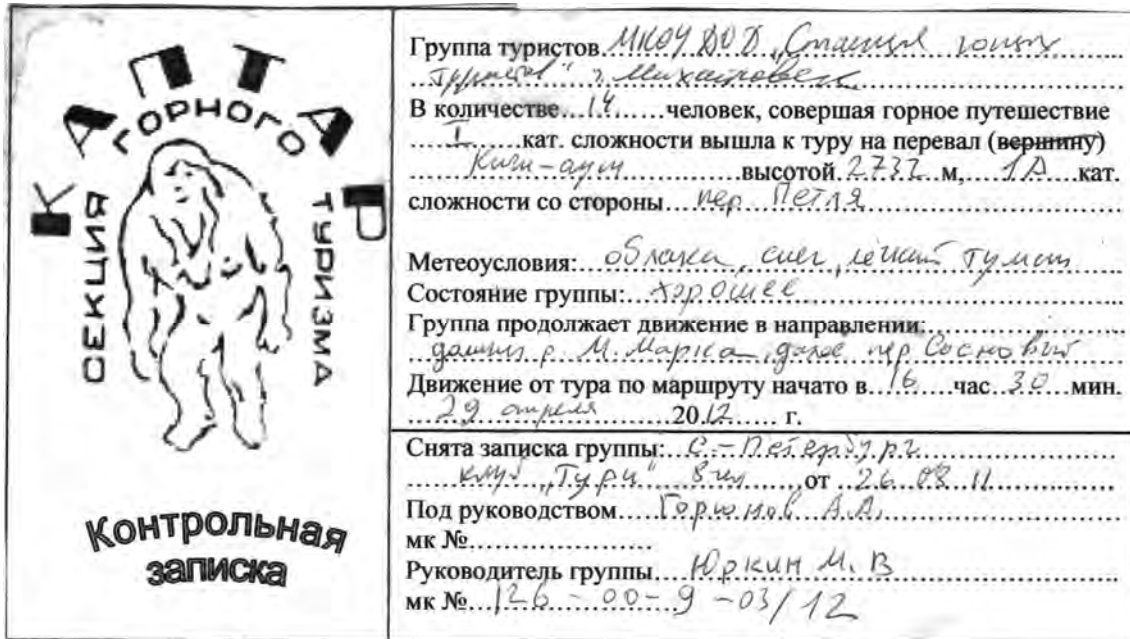 КАПТАР
СЕКЦИЯ ГОРНОГО ТУРИЗМА
Контрольная
записка
Группа туристов МКОУ ДОД „Станция юных
туристов" г. Михайловск
В количестве 14 человек, совершая горное путешествие
I кат. сложности вышла к туру на перевал (вершину)
Киги-ауш высотой 2737 м, 1А кат.
сложности со стороны пер. Петля
Метеоусловия: облака, снег, лёгкий туман
Состояние группы: хорошее
Группа продолжает движение в направлении:
р. М. Марка, далее пер. Сосновый
Движение от тура по маршруту начато в 16 час 30 мин.
29 апреля 2012 г.
Снята записка группы: С.-Петербург
клуб „Тури" 8 чел от 26 08 11
Под руководством Горюнов А.А.
мк №
Руководитель группы Юркин М. В
мк № 126-00-9-03/12